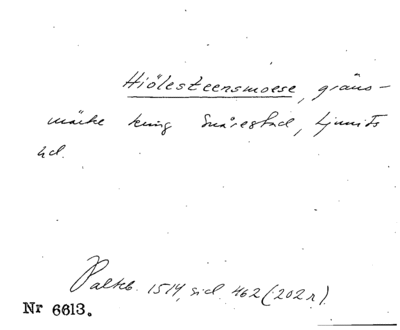 Hiölesteensmoese, gräns-
märke kring Snårestad, Ljunits
hd.
Palteb. 1514, sid. 462 (202 r).
Nr 6613.